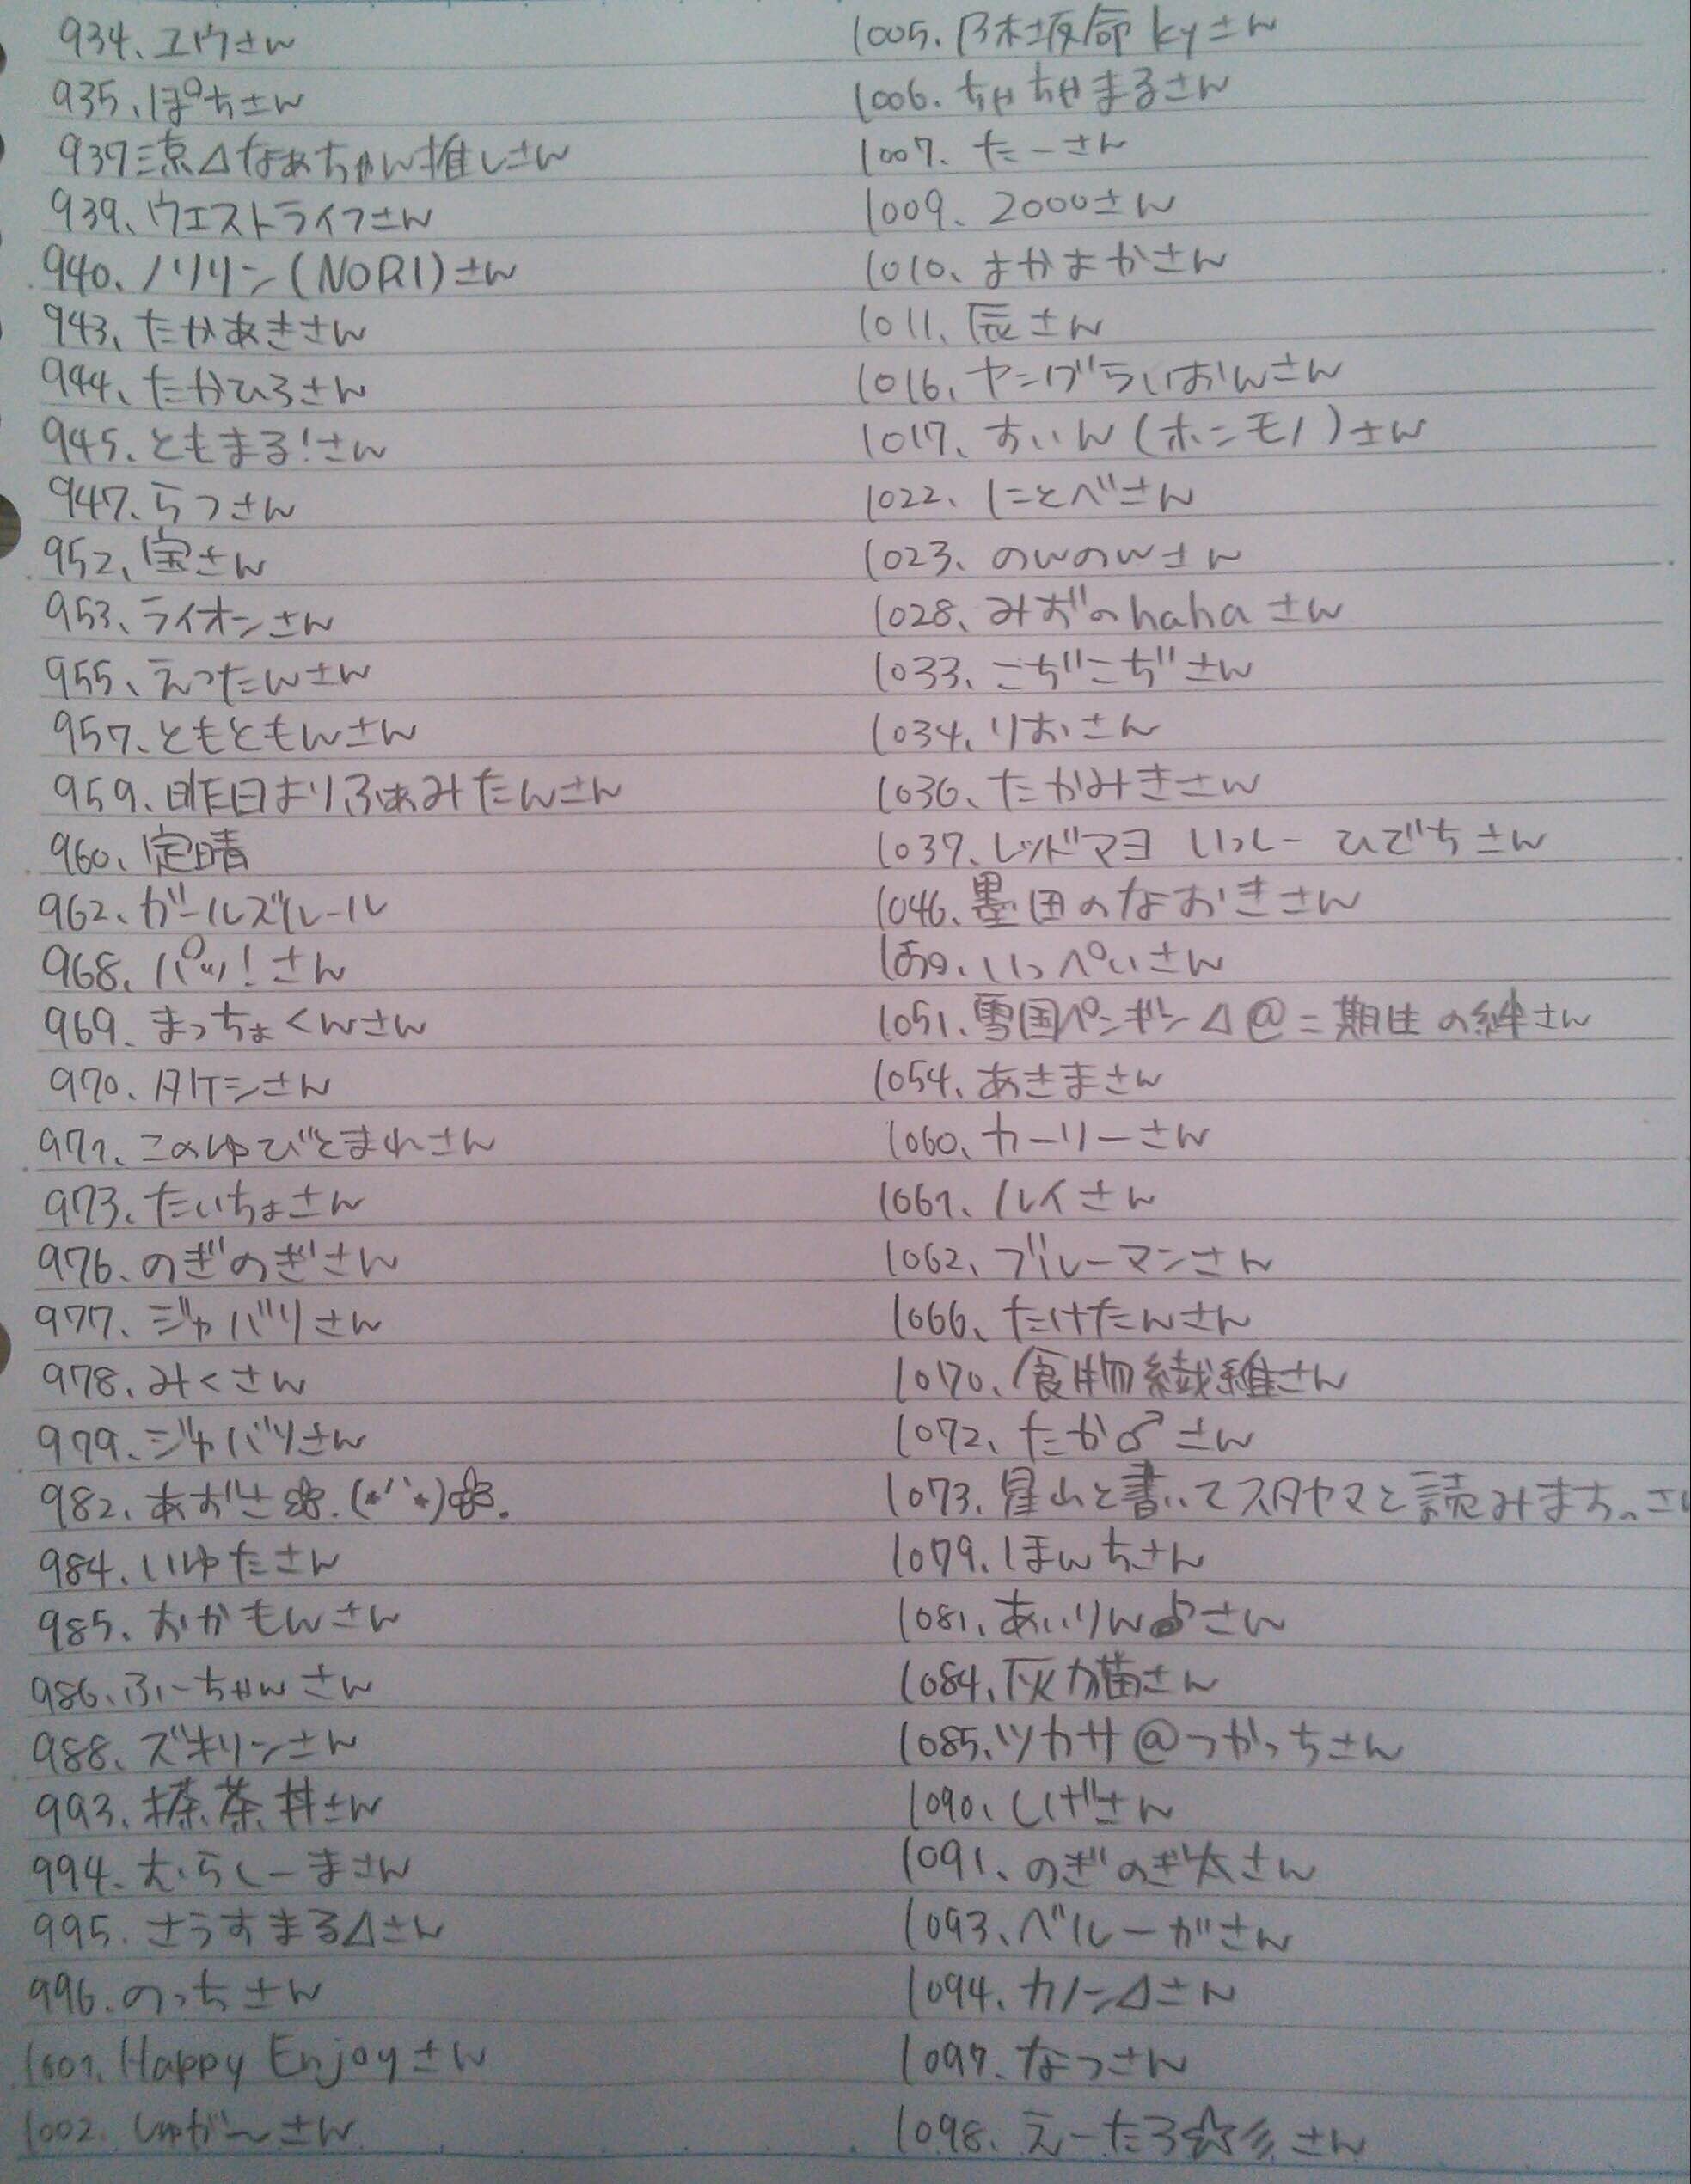 934、ユウさん
935、ぽちさん
937、三涼⊿なぁちゃん推しさん
939、ウエストライフさん
940、ノリリン(NORI)さん
943、たかあきさん
944、たかひろさん
945、ともまる!さん
947、らつさん
952、宝さん
953、ライオンさん
955、えったんさん
957、ともともんさん
959、昨日まりふぁみたんさん
960、定晴
962、ガールズルール
968、パッ!さん
969、まっちょくんさん
970、タケシさん
971、このゆびとまれさん
973、たいちょさん
976、のぎのぎさん
977、ジャバリさん
978、みくさん
979、ジャバリさん
982、あおさ
984、いゆたさん
985、おかもんさん
986、ふーちゃんさん
988、ズキリンさん
993、茶丼さん
994、むらしーまさん
995、さうすまる⊿さん
996、のっちさん
1001、Happy Enjoyさん
1002、しゅが〜さん
1005、乃木坂命kyさん
1006、ちゃちゃまるさん
1007、たーさん
1009、2000さん
1010、まかまかさん
1011、辰さん
1016、ヤングらいおんさん
1017、すいん(ホンモノ)さん
1022、にとべさん
1023、のんのんさん
1028、みおのhahaさん
1033、こぢこぢさん
1034、りおさん
1036、たかみきさん
1037、レッドマヨ いっしー ひでちさん
1046、墨田のなおきさん
いっぺいさん
1051、雪国ペンギン⊿@二期生の絆さん
1054、あさまさん
1060、カーリーさん
1061、ルイさん
1062、ブルーマンさん
1066、たけたんさん
1070、食物繊維さん
1072、たか♂さん
1073、星山と書いてスタヤマと読みます。さん
1079、ほんちさん
1081、あいりん♂さん
1084、灰カ猫さん
1085、ツカサ@つかっちさん
1090、しげさん
1091、のぎのぎ太さん
1093、ベルーガさん
1094、カノン⊿さん
1097、なつさん
1098、えーたろ☆彡さん